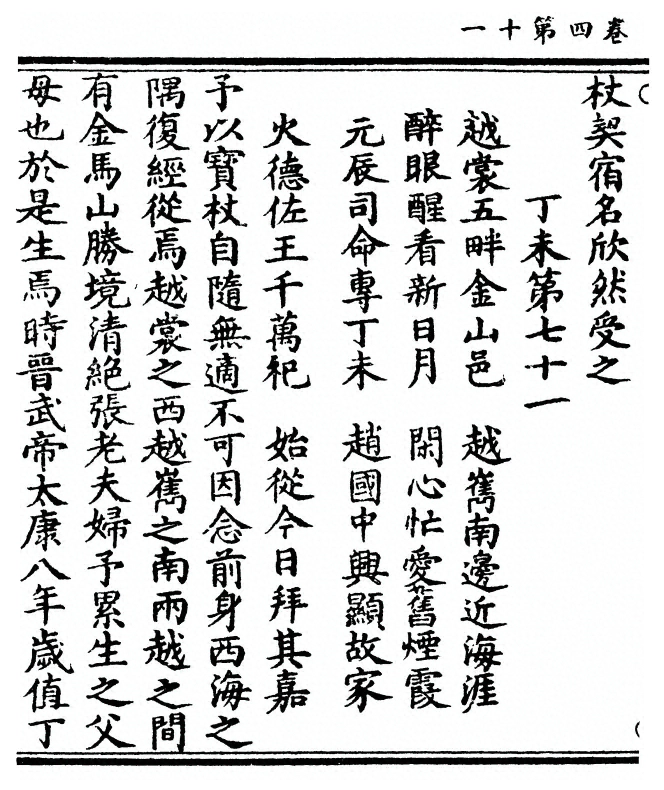 卷四第十一
杖契宿名欣然受之
丁未第七十一
越裳五畔金山邑　越嶲南邊近海涯
醉眼醒看新日月　閑心忙愛舊煙霞
元辰司命專丁未　趙國中興顯故家
火德佐王千萬祀　始從今日拜其嘉
予以寶杖自隨無適不可因念前身西海之
隅復經從焉越裳之西越嶲之南兩越之間
有金馬山勝境清絕張老夫婦予累生之父
母也於是生焉時晉武帝太康八年歲值丁